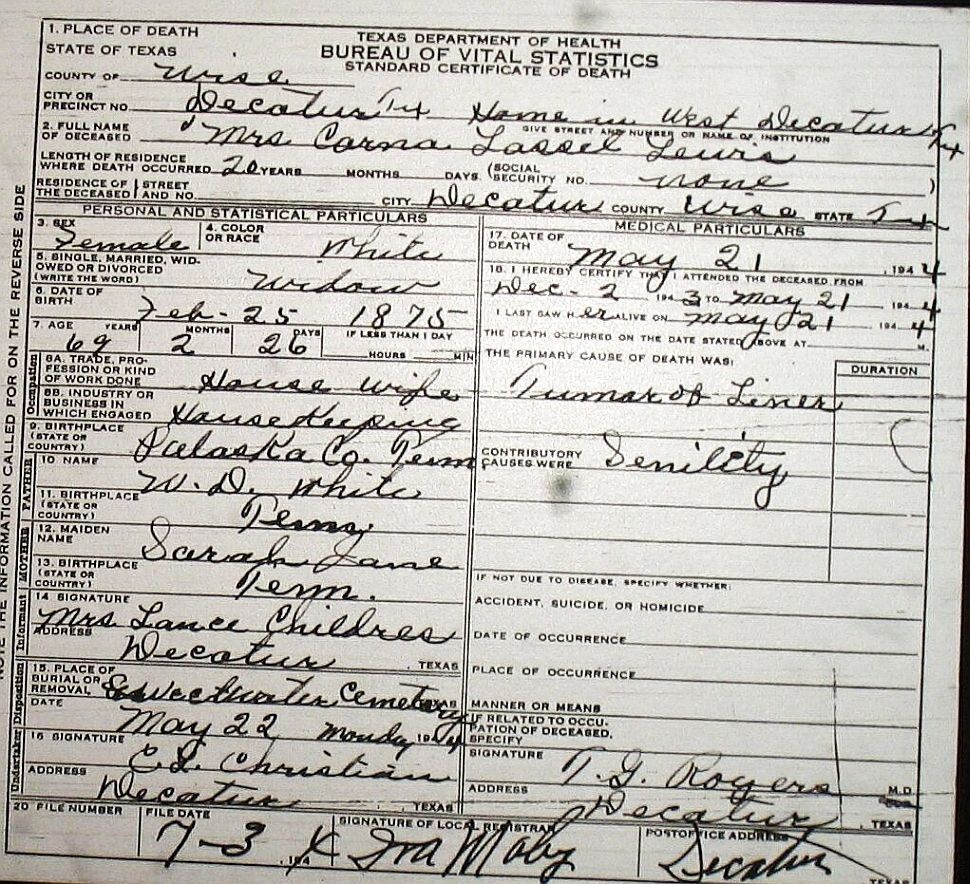 1. PLACE OF DEATH
STATE OF TEXAS
TEXAS DEPARTMENT OF HEALTH
BUREAU OF VITAL STATISTICS
STANDARD CERTIFICATE OF DEATH
COUNTY OF Wise
CITY OR PRECINCT NO. Decatur Tex Home in West Decatur Tex
GIVE STREET AND NUMBER OR NAME OF INSTITUTION
2. FULL NAME OF DECEASED Mrs Corna Lassel Lewis
LENGTH OF RESIDENCE WHERE DEATH OCCURRED 20 YEARS MONTHS DAYS (SOCIAL SECURITY NO. none )
RESIDENCE OF THE DECEASED STREET AND NO. CITY Decatur COUNTY Wise STATE Tex
PERSONAL AND STATISTICAL PARTICULARS
3. SEX Female
4. COLOR OR RACE White
5. SINGLE, MARRIED, WIDOWED OR DIVORCED (WRITE THE WORD) Widow
6. DATE OF BIRTH Feb-25 1875
7. AGE YEARS 69 MONTHS 2 DAYS 26 IF LESS THAN 1 DAY HOURS MIN
Occupation
8A. TRADE, PROFESSION OR KIND OF WORK DONE House wife
8B. INDUSTRY OR BUSINESS IN WHICH ENGAGED House Keeping
9. BIRTHPLACE (STATE OR COUNTRY) Pulaska Co. Tenn
FATHER
10 NAME W. D. White
11. BIRTHPLACE (STATE OR COUNTRY) Tenn
MOTHER
12. MAIDEN NAME Sarah Jane
13. BIRTHPLACE (STATE OR COUNTRY) Tenn.
Informant
14 SIGNATURE Mrs Lance Childres
ADDRESS Decatur , TEXAS
Disposition
15. PLACE OF BURIAL OR REMOVAL Sweetwater Cemetery TEXAS
DATE May 22 Monday 1944
Undertaker
16 SIGNATURE C.L. Christian
ADDRESS Decatur , TEXAS
MEDICAL PARTICULARS
17. DATE OF DEATH May 21 , 1944
18. I HEREBY CERTIFY THAT I ATTENDED THE DECEASED FROM
Dec-2 1943 TO May 21 1944
I LAST SAW HER ALIVE ON May 21 1944
THE DEATH OCCURRED ON THE DATE STATED ABOVE AT M.
THE PRIMARY CAUSE OF DEATH WAS:
DURATION
Tumor of Liver
CONTRIBUTORY CAUSES WERE Senility
IF NOT DUE TO DISEASE, SPECIFY WHETHER:
ACCIDENT, SUICIDE, OR HOMICIDE
DATE OF OCCURRENCE
PLACE OF OCCURRENCE
MANNER OR MEANS
IF RELATED TO OCCUPATION OF DECEASED, SPECIFY
SIGNATURE T. G. Rogers M.D.
ADDRESS Decatur , TEXAS
20 FILE NUMBER
FILE DATE 7-3 194
SIGNATURE OF LOCAL REGISTRAR Ira
POSTOFFICE ADDRESS Decatur TEXAS
NOTE THE INFORMATION CALLED FOR ON THE REVERSE SIDE